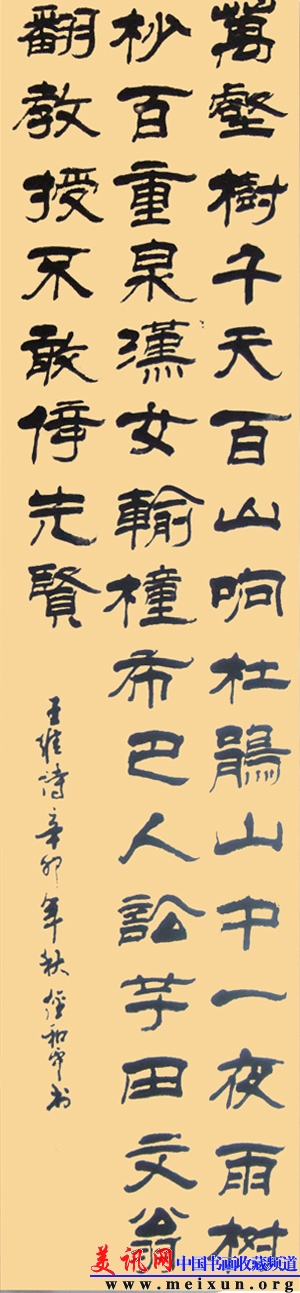 萬壑樹千天百山响杜鵑山中一夜雨树
杪百重泉漢女輸橦布巴人訟芋田文翁
翻教授不敢倚先賢
王維诗辛卯年秋 书
美讯网 中国书画收藏频道
www.meixun.org